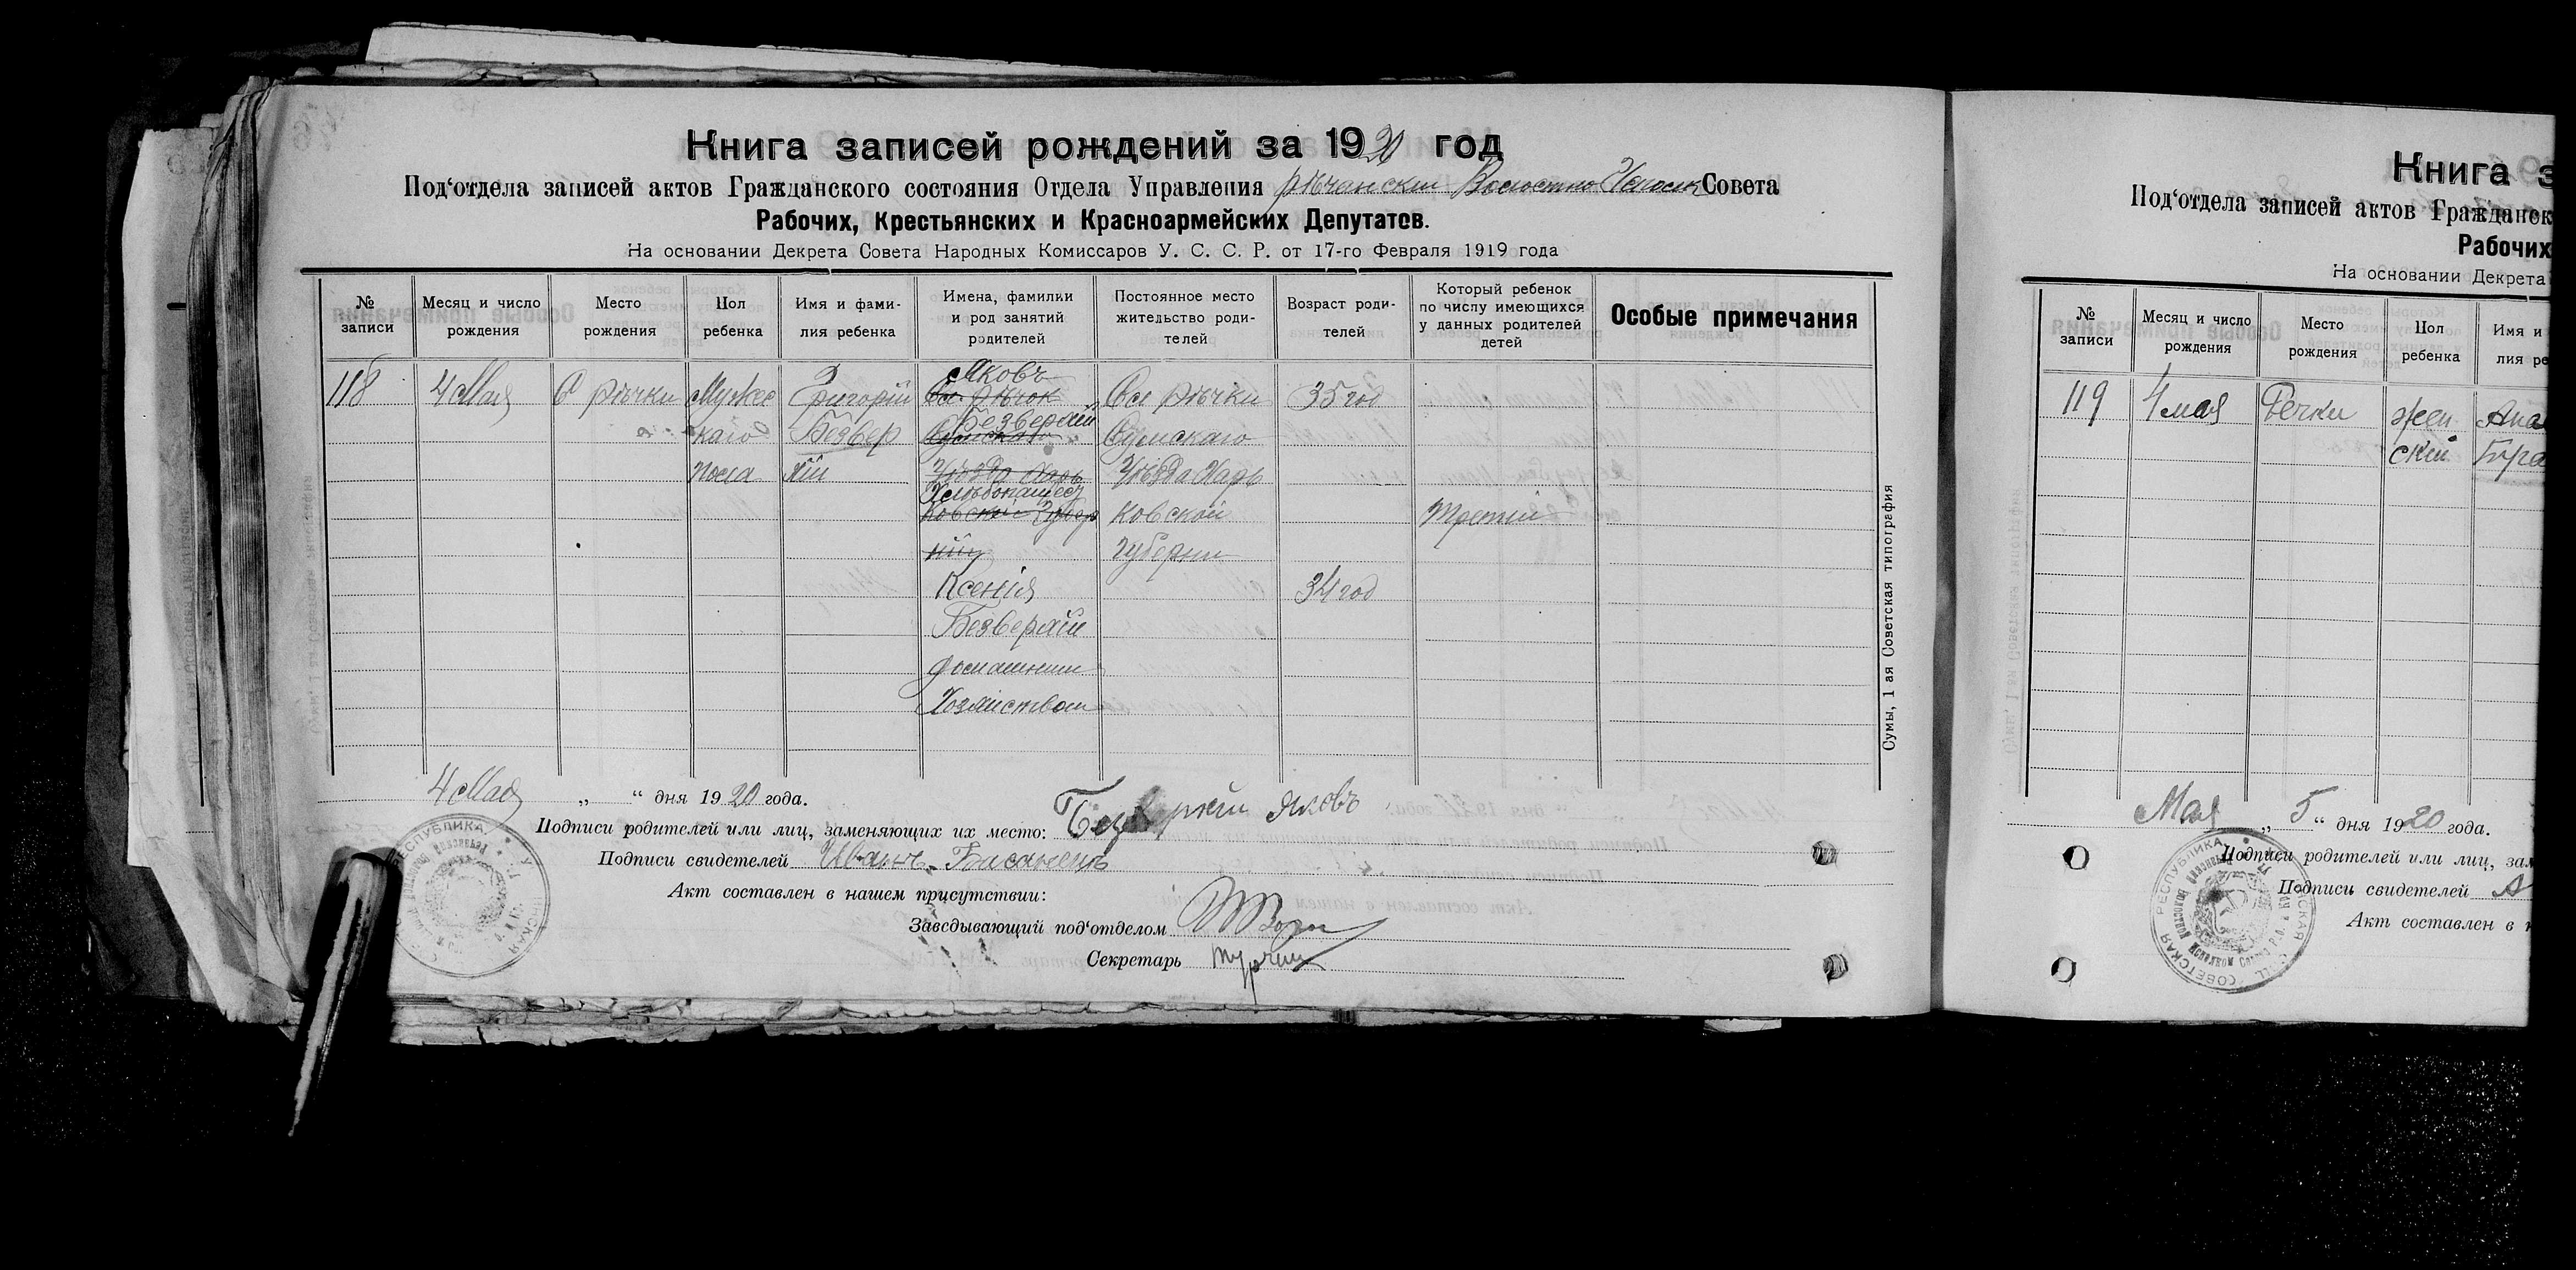 Книга записей рождений за 1920 год
Под‘отдела записей актов Гражданского состояния Отдела Управления Рѣчанскии Волостно Совета
Рабочих, Крестьянских и Красноармейских Депутатов.
На основании Декрета Совета Народных Комиссаров У. С. С. Р. от 17-го Февраля 1919 года
№ записи
Месяц и число рождения
Место рождения
Пол ребенка
Имя и фами-
лия ребенка
Имена, фамилии
и род занятий
родителей
Постоянное место
жительство роди-
телей
Возраст роди-
телей
Который ребенок
по числу имеющихся
у данных родителей
детей
Особые примечания
118
4 Мая
С Рѣчки
Мужес
каго
пола
Григорій
Безвер
хій
Яковъ
Безверхій
Хлѣбопашец
Ксенія
Безверхіи
домашнии
Хозяиством
Сел Рѣчки
Сумскаго
Уѣзда Харь
ковской
губерни
35 год
34 год
Третий
Сумы, 1 ая Советская типография
4 Мая „ “ дня 1920 года.
Подписи родителей или лиц, заменяющих их место: Безверхій Яковъ
Подписи свидетелей Иванъ Басанецъ
Акт составлен в нашем присутствии:
Заведывающий под‘отделом
Секретарь
Книга з
Под‘отдела записей актов Гражданск
Рабочих
На основании Декрета
№ записи
Месяц и число рождения
Место рождения
Пол ребенка
Имя и
лия ре
119
4 мая
Речки
жен
ский
Мая „ 5 “ дня 1920 года.
Подписи родителей или лиц, зам
Подписи свидетелей
Акт составлен в н